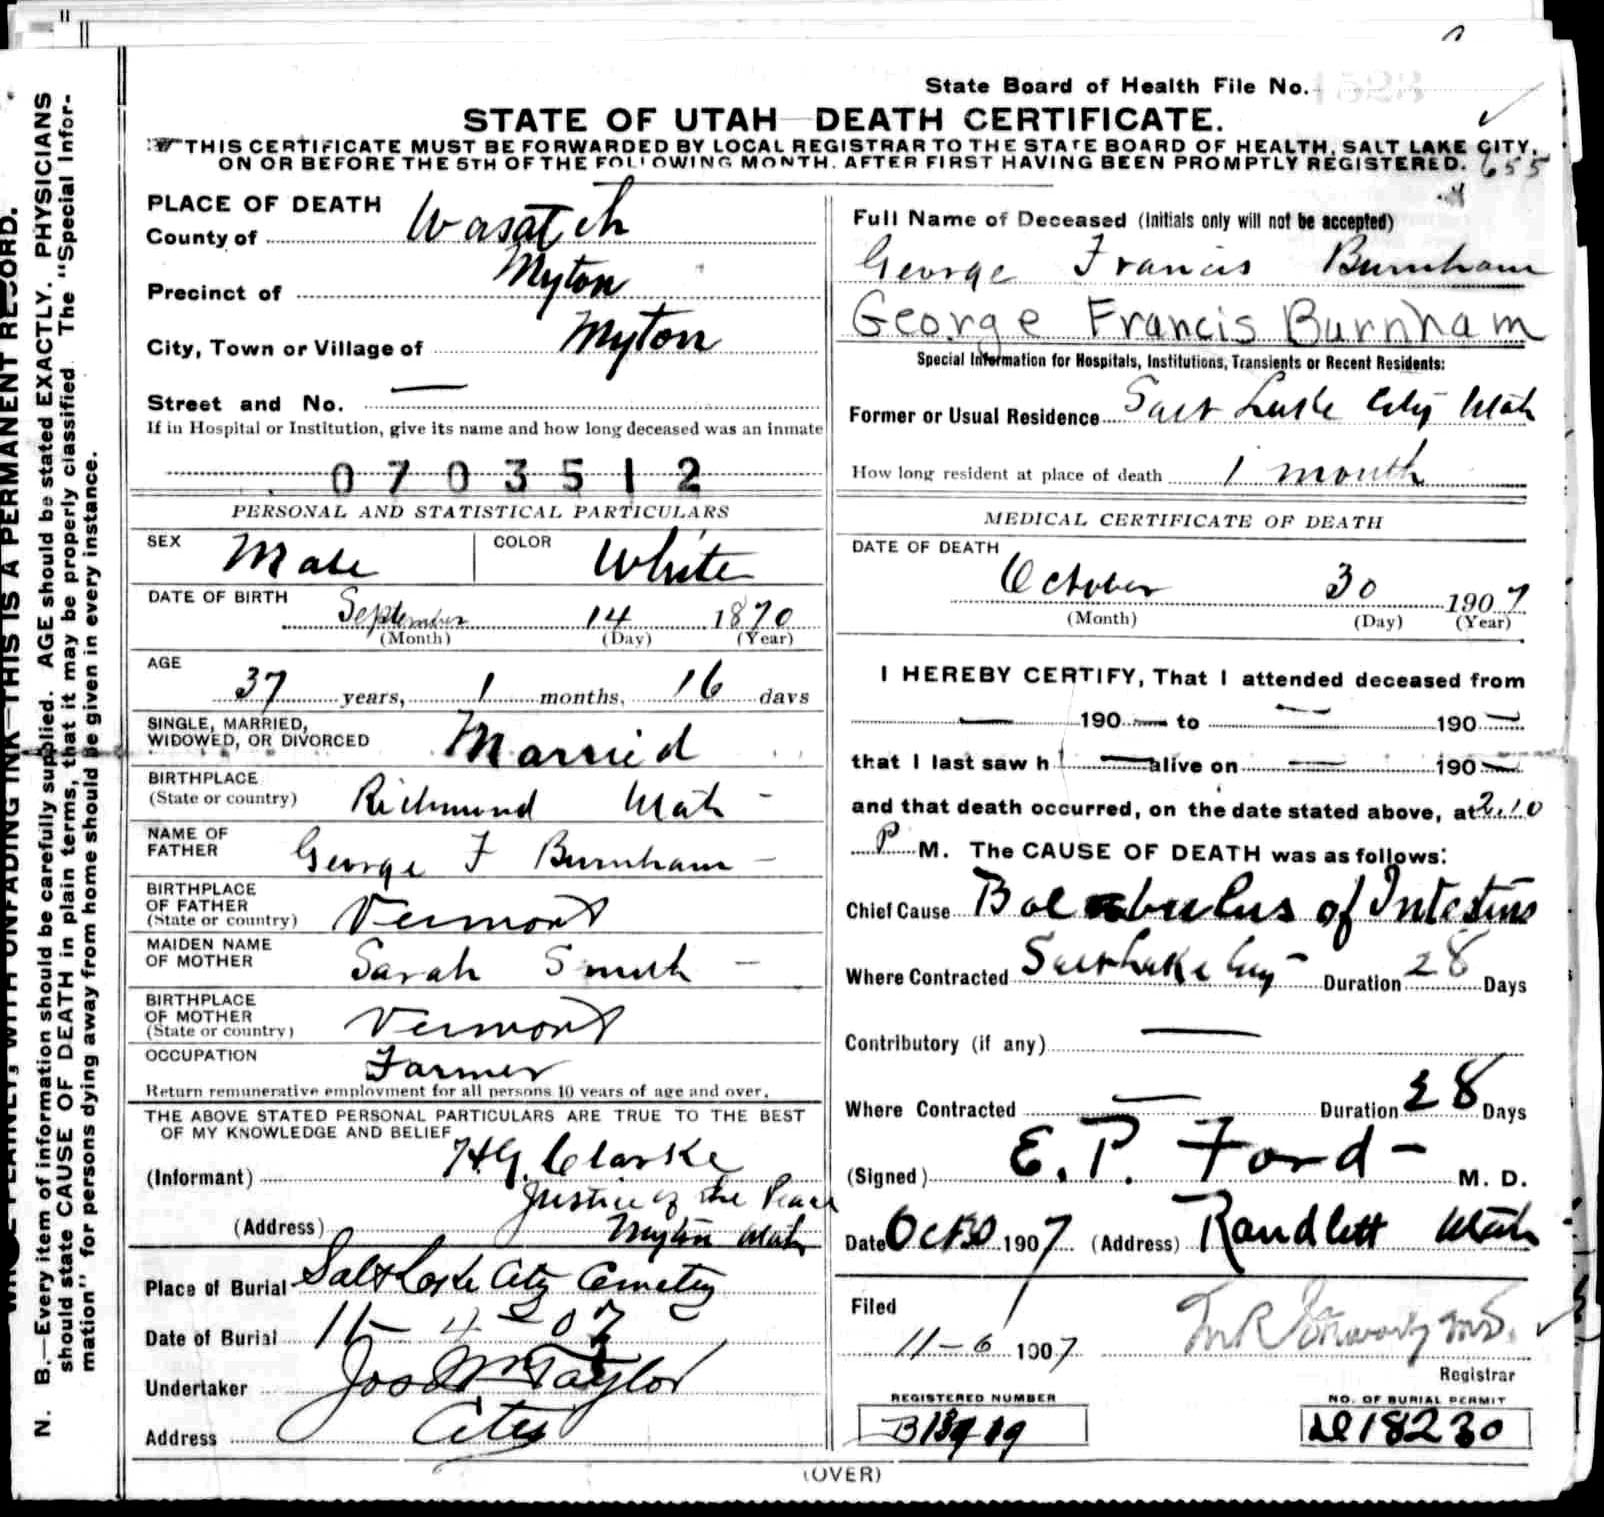 State Board of Health File No.
STATE OF UTAH—DEATH CERTIFICATE.
THIS CERTIFICATE MUST BE FORWARDED BY LOCAL REGISTRAR TO THE STATE BOARD OF HEALTH, SALT LAKE CITY,
ON OR BEFORE THE 5TH OF THE FOLLOWING MONTH. AFTER FIRST HAVING BEEN PROMPTLY REGISTERED. 655
N. B.—Every item of information should be carefully supplied. AGE should be stated EXACTLY. PHYSICIANS
should state CAUSE OF DEATH in plain terms, that it may be properly classified. The "Special Infor-
mation" for persons dying away from home should be given in every instance.
PLAINLY, WITH UNFADING INK—THIS IS A PERMANENT RECORD.
PLACE OF DEATH
County of Wasatch
Precinct of Myton
City, Town or Village of Myton
Street and No. —
If in Hospital or Institution, give its name and how long deceased was an inmate
0703512
PERSONAL AND STATISTICAL PARTICULARS
SEX Male COLOR White
DATE OF BIRTH September 14 1870
(Month) (Day) (Year)
AGE 37 years, 1 months, 16 days
SINGLE, MARRIED,
WIDOWED, OR DIVORCED Married
BIRTHPLACE
(State or country) Richmond Utah -
NAME OF
FATHER George F Burnham -
BIRTHPLACE
OF FATHER
(State or country) Vermont
MAIDEN NAME
OF MOTHER Sarah Smith -
BIRTHPLACE
OF MOTHER
(State or country) Vermont
OCCUPATION Farmer
Return remunerative employment for all persons 10 years of age and over.
THE ABOVE STATED PERSONAL PARTICULARS ARE TRUE TO THE BEST
OF MY KNOWLEDGE AND BELIEF
(Informant) H.G. Clarke
Justice of the Peace
(Address) Myton Utah
Place of Burial Salt Lake City Cemetery
Date of Burial 11-4-07
Undertaker Jos Wm Taylor
Address City
Full Name of Deceased (Initials only will not be accepted)
George Francis Burnham
George Francis Burnham
Special Information for Hospitals, Institutions, Transients or Recent Residents:
Former or Usual Residence Salt Lake City Utah
How long resident at place of death 1 month
MEDICAL CERTIFICATE OF DEATH
DATE OF DEATH
October 30 1907
(Month) (Day) (Year)
I HEREBY CERTIFY, That I attended deceased from
— 190 — to — 190 —
that I last saw h — alive on — 190 —
and that death occurred, on the date stated above, at 2.10
P M. The CAUSE OF DEATH was as follows:
Chief Cause of Intestine
Where Contracted Salt Lake City - Duration 28 Days
Contributory (if any) —
Where Contracted — Duration 28 Days
(Signed) E. P. Ford - M. D.
Date Oct 30 1907 (Address) Randlett Utah
Filed
11-6 1907
Registrar
REGISTERED NUMBER
NO. OF BURIAL PERMIT
18230
(OVER)